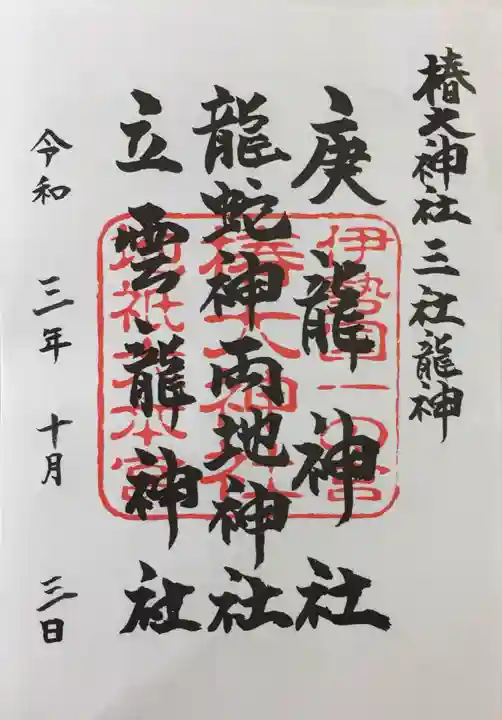 椿大神社 三社龍神
庚龍神社
龍蛇神両地神社
立雲龍神社
令和 三年 十月 三日
伊勢国一の宮
椿大神社
地祇大本宮